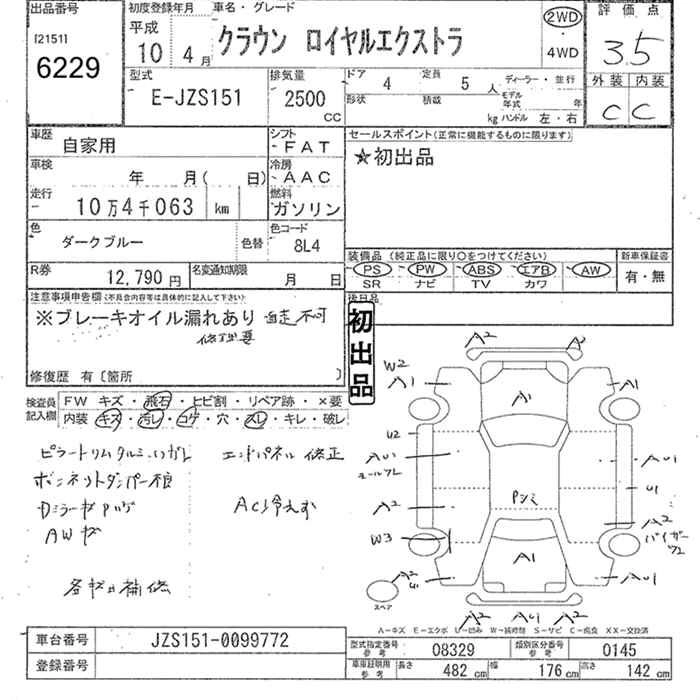 出品番号
[21511
6229
初度登録年月
平成
10 4月
車名・グレード
クラウン ロイヤルエクストラ
2WD
・
4WD
評価点
3.5
外装 内装
C C
型式
E-JZS151
排気量
2500
CC
ドア 4
定員 5 人
ディーラー・並行
形状
積載
kg
モデル年式 年
ハンドル 左・右
車歴 自家用
シフト
FAT
車検 年 月( 日)
冷房
AAC
走行
10万4千063 km
燃料
ガソリン
色
ダークブルー
色替
色コード
8L4
R券 12,790 円
名変通知期限 月 日
セールスポイント(正常に機能するものに限ります)
☆初出品
装備品 (純正品に限り○をつけてください)
PS・PW・ABS・エアB・AW
SR ナビ TV カワ
新車保証書
有・無
後日品
注意事項申告欄(不具合内容等は具体的に記入して下さい)
※ブレーキオイル漏れあり 自走不可
修理要
修復歴 有〔箇所 〕
初出品
検査員記入欄
FW キズ・飛石・ヒビ割・リペア跡・×要
内装・キズ・汚レ・コゲ・穴・スレ・キレ・破レ
エンドパネル 修正
ボンネットダンパー不良
Dミラーキズ
AWキズ
AC冷えず
各キズ凹補修
A2 A2
W2
A1 A1 A1
U2
AU1 AU1
モールワレ
U1
Pシミ
A2 A2
バイザーワレ
W3
A1
A2 U1 AU1
スペア
A2 AU1 A2
A-キズ E-エクボ U-凹み W-補修跡 S-サビ C-腐食 XX-交換済
車台番号 JZS151-0099772
登録番号
型式指定番号 参考 08329
類別区分番号 参考 0145
車車証明用 参考 長さ 482 cm 幅 176 cm 高さ 142 cm